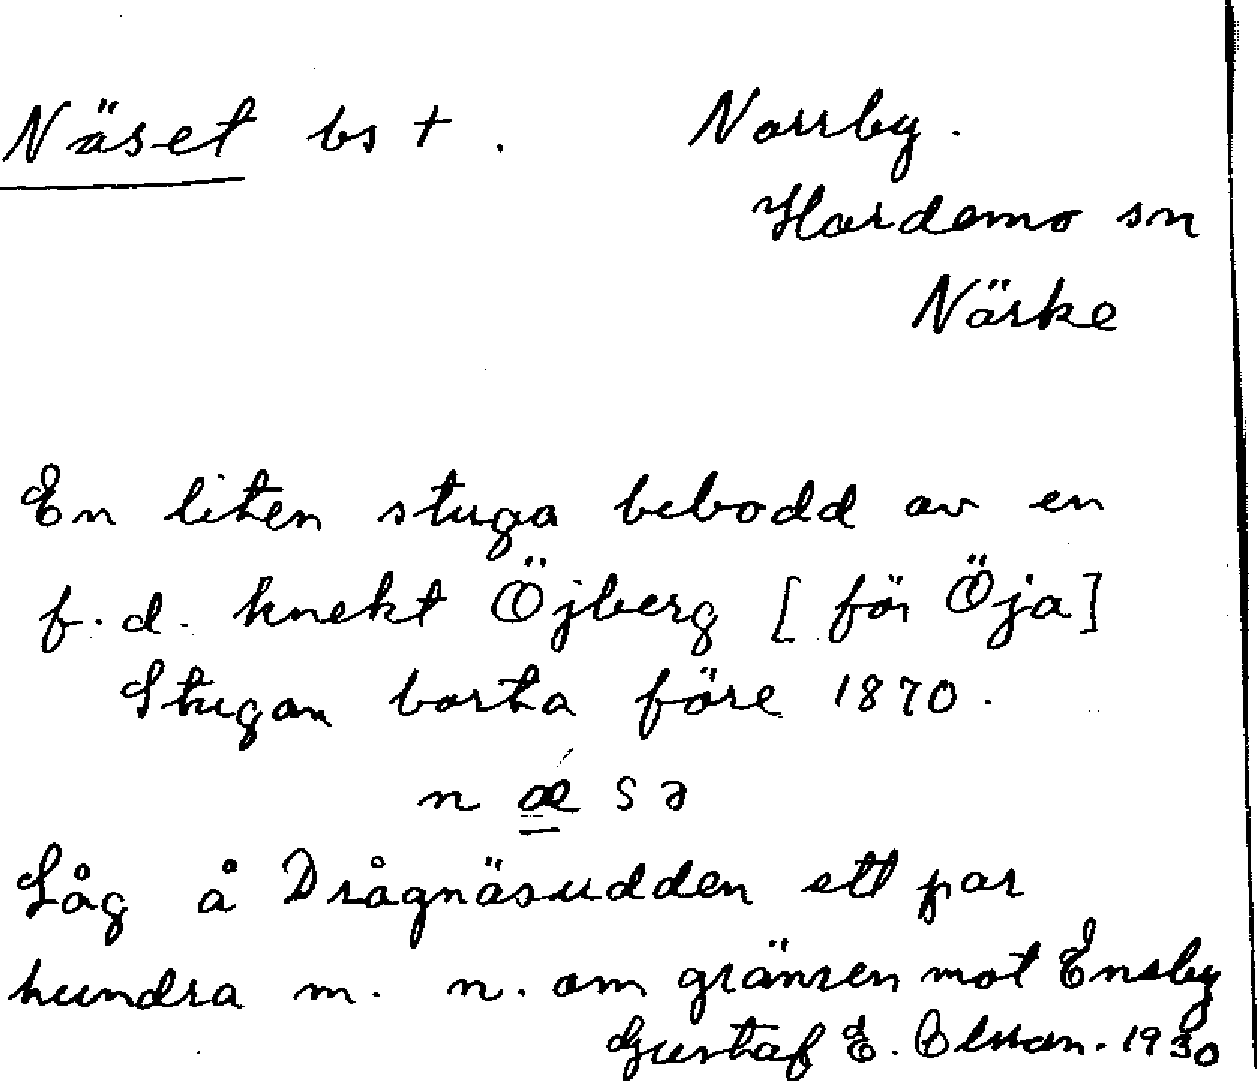 Näset bs †. Norrby.
Hardemo sn
Närke
En liten stuga bebodd av en
f.d. knekt Öjberg [för Öja]
Stugan borta före 1870.
næ´sə
Låg å Drågnäsudden ett par
hundra m. n. om gränsen mot Ensby
Gustaf E. Olsson. 1930